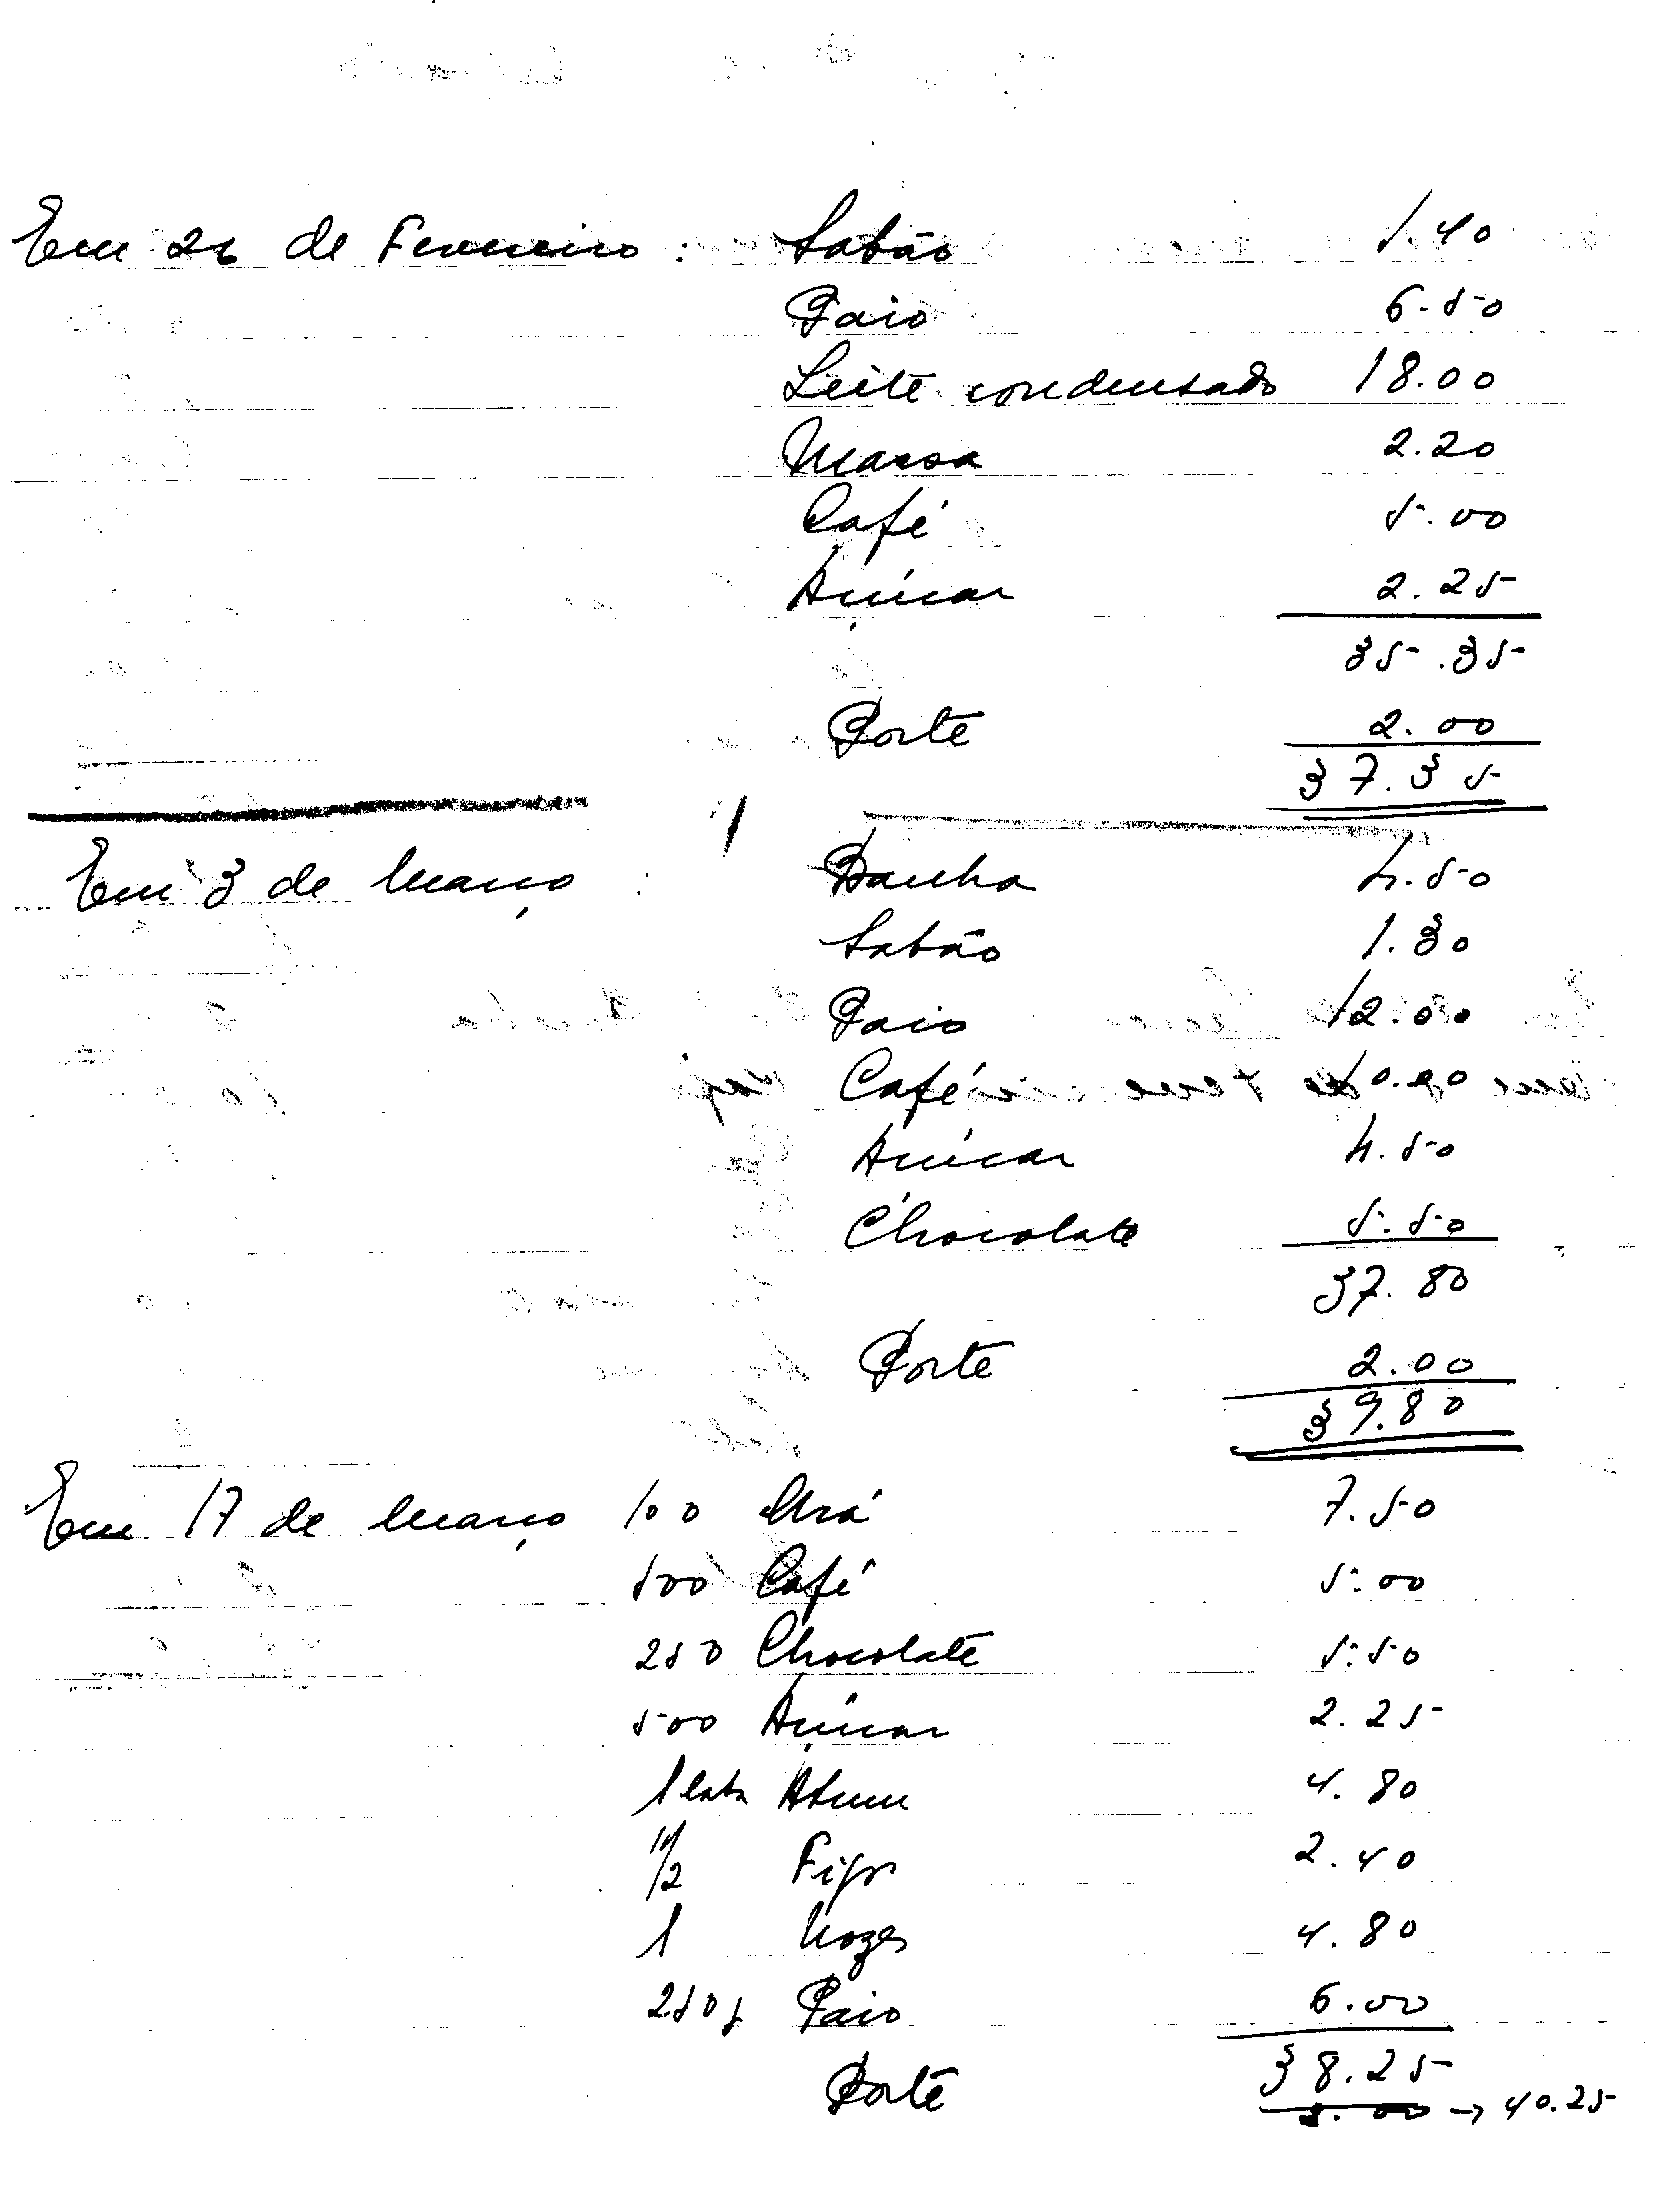 Em 26 de Fevereiro : Sabão 1.40
Paio 6.50
Leite condensado 18.00
Massa 2.20
Café 5.00
Açúcar 2.25
35.35
Porte 2.00
37.35
Em 3 de Março : Banha 4.50
Sabão 1.30
Paio 12.00
Café 10.00
Açúcar 4.50
Chocolate 5.50
37.80
Porte 2.00
39.80
Em 17 de Março 100 Chá 7.50
500 Café 5.00
250 Chocolate 5.50
500 Açúcar 2.25
1 lata Atum 4.80
1/2 Figos 2.40
1 Nozes 4.80
250g Paio 6.00
38.25
Porte 2.00 → 40.25